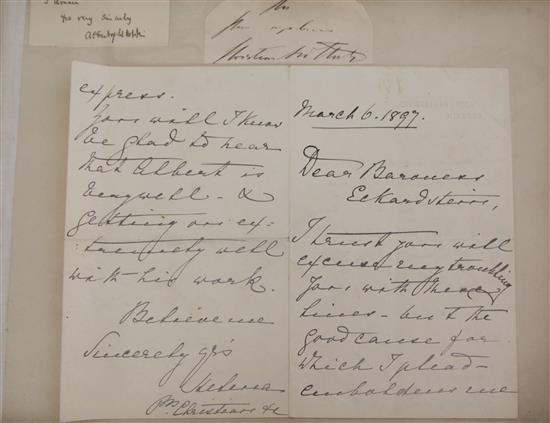 Yrs very sincerely
March 6. 1897.
Dear Baroness
Eckardstein,
I trust you will
excuse my troubling
you with these
lines - but the
good cause for
which I plead -
emboldens me
express.
You will I know
be glad to hear
that Albert is
very well - &
getting on ex-
:tremely well
with his work.
Believe me
Sincerely yrs
Helena
Pss Christian &c